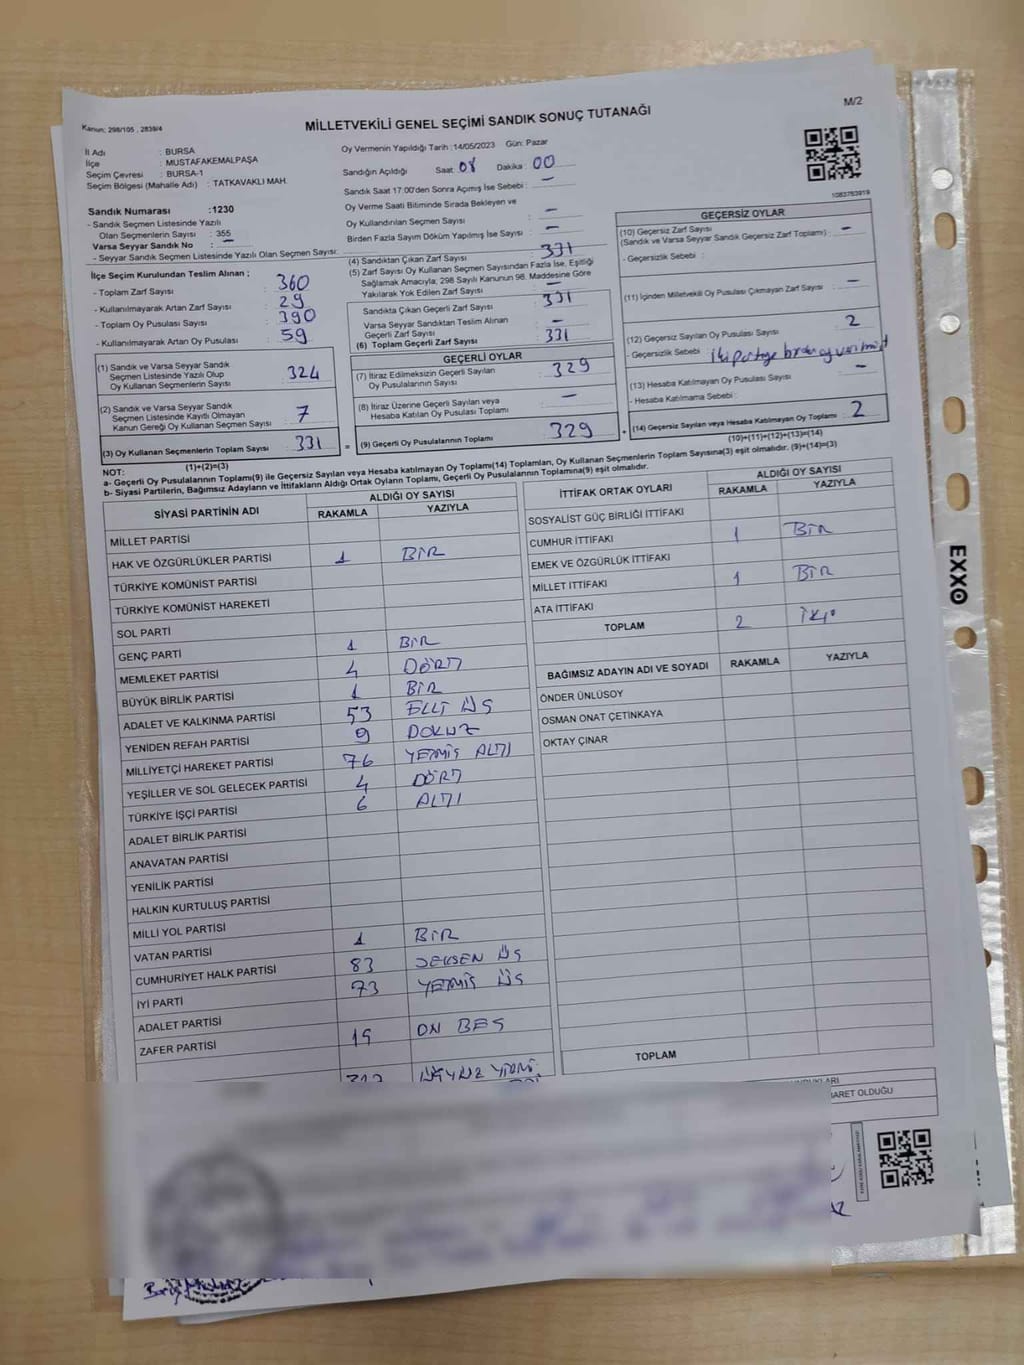 Kanun: 298/105 , 2839/4
MİLLETVEKİLİ GENEL SEÇİMİ SANDIK SONUÇ TUTANAĞI
M/2
İl Adı : BURSA
İlçe : MUSTAFAKEMALPAŞA
Seçim Çevresi : BURSA-1
Seçim Bölgesi (Mahalle Adı) : TATKAVAKLI MAH.
Sandık Numarası :1230
- Sandık Seçmen Listesinde Yazılı
Olan Seçmenlerin Sayısı : 355
Varsa Seyyar Sandık No : -
- Seyyar Sandık Seçmen Listesinde Yazılı Olan Seçmen Sayısı:
Oy Vermenin Yapıldığı Tarih :14/05/2023 Gün: Pazar
Sandığın Açıldığı Saat: 08 Dakika : 00
Sandık Saat 17:00'den Sonra Açımış İse Sebebi : -
Oy Verme Saati Bitiminde Sırada Bekleyen ve
Oy Kullandırılan Seçmen Sayısı -
Birden Fazla Sayım Döküm Yapılmış İse Sayısı : -
1083783919
İlçe Seçim Kurulundan Teslim Alınan ;
- Toplam Zarf Sayısı : 360
- Kullanılmayarak Artan Zarf Sayısı : 29
- Toplam Oy Pusulası Sayısı : 390
- Kullanılmayarak Artan Oy Pusulası : 59
(1) Sandık ve Varsa Seyyar Sandık
Seçmen Listesinde Yazılı Olup
Oy Kullanan Seçmenlerin Sayısı : 324
(2) Sandık ve Varsa Seyyar Sandık
Seçmen Listesinde Kayıtlı Olmayan
Kanun Gereği Oy Kullanan Seçmen Sayısı : 7
(3) Oy Kullanan Seçmenlerin Toplam Sayısı : 331
(1)+(2)=(3)
(4) Sandıktan Çıkan Zarf Sayısı : 331
(5) Zarf Sayısı Oy Kullanan Seçmen Sayısından Fazla İse, Eşitliği
Sağlamak Amacıyla; 298 Sayılı Kanunun 98. Maddesine Göre
Yakılarak Yok Edilen Zarf Sayısı : -
Sandıkta Çıkan Geçerli Zarf Sayısı : 331
Varsa Seyyar Sandıktan Teslim Alınan
Geçerli Zarf Sayısı : -
(6) Toplam Geçerli Zarf Sayısı : 331
GEÇERLİ OYLAR
(7) İtiraz Edilmeksizin Geçerli Sayılan
Oy Pusulalarının Sayısı : 329
(8) İtiraz Üzerine Geçerli Sayılan veya
Hesaba Katılan Oy Pusulası Toplamı : -
= (9) Geçerli Oy Pusulalarının Toplamı : 329
GEÇERSİZ OYLAR
(10) Geçersiz Zarf Sayısı
(Sandık ve Varsa Seyyar Sandık Geçersiz Zarf Toplamı) : -
- Geçersizlik Sebebi :
(11) İçinden Milletvekili Oy Pusulası Çıkmayan Zarf Sayısı : -
(12) Geçersiz Sayılan Oy Pusulası Sayısı : 2
- Geçersizlik Sebebi : iki partiye birden oy verilmiş
(13) Hesaba Katılmayan Oy Pusulası Sayısı : -
- Hesaba Katılmama Sebebi :
+ (14) Geçersiz Sayılan veya Hesaba Katılmayan Oy Toplamı : 2
(10)+(11)+(12)+(13)=(14)
NOT:
a- Geçerli Oy Pusulalarının Toplamı(9) ile Geçersiz Sayılan veya Hesaba katılmayan Oy Toplamı(14) Toplamları, Oy Kullanan Seçmenlerin Toplam Sayısına(3) eşit olmalıdır. (9)+(14)=(3)
b- Siyasi Partilerin, Bağımsız Adayların ve İttifakların Aldığı Ortak Oyların Toplamı, Geçerli Oy Pusulalarının Toplamına(9) eşit olmalıdır.
SİYASİ PARTİNİN ADI ALDIĞI OY SAYISI
RAKAMLA YAZIYLA
MİLLET PARTİSİ
HAK VE ÖZGÜRLÜKLER PARTİSİ 1 BİR
TÜRKİYE KOMÜNİST PARTİSİ
TÜRKİYE KOMÜNİST HAREKETİ
SOL PARTİ
GENÇ PARTİ 1 BİR
MEMLEKET PARTİSİ 4 DÖRT
BÜYÜK BİRLİK PARTİSİ 1 BİR
ADALET VE KALKINMA PARTİSİ 53 ELLİ ÜÇ
YENİDEN REFAH PARTİSİ 9 DOKUZ
MİLLİYETÇİ HAREKET PARTİSİ 76 YETMİŞ ALTI
YEŞİLLER VE SOL GELECEK PARTİSİ 4 DÖRT
TÜRKİYE İŞÇİ PARTİSİ 6 ALTI
ADALET BİRLİK PARTİSİ
ANAVATAN PARTİSİ
YENİLİK PARTİSİ
HALKIN KURTULUŞ PARTİSİ
MİLLİ YOL PARTİSİ
VATAN PARTİSİ 1 BİR
CUMHURİYET HALK PARTİSİ 83 SEKSEN ÜÇ
İYİ PARTİ 73 YETMİŞ ÜÇ
ADALET PARTİSİ
ZAFER PARTİSİ 15 ON BEŞ
ÜÇYÜZ YİRMİ
İTTİFAK ORTAK OYLARI ALDIĞI OY SAYISI
RAKAMLA YAZIYLA
SOSYALİST GÜÇ BİRLİĞİ İTTİFAKI
CUMHUR İTTİFAKI 1 BİR
EMEK VE ÖZGÜRLÜK İTTİFAKI
MİLLET İTTİFAKI 1 BİR
ATA İTTİFAKI
TOPLAM 2 İKİ
BAĞIMSIZ ADAYIN ADI VE SOYADI RAKAMLA YAZIYLA
ÖNDER ÜNLÜSOY
OSMAN ONAT ÇETİNKAYA
OKTAY ÇINAR
TOPLAM
ARET OLDUĞU
EXXO